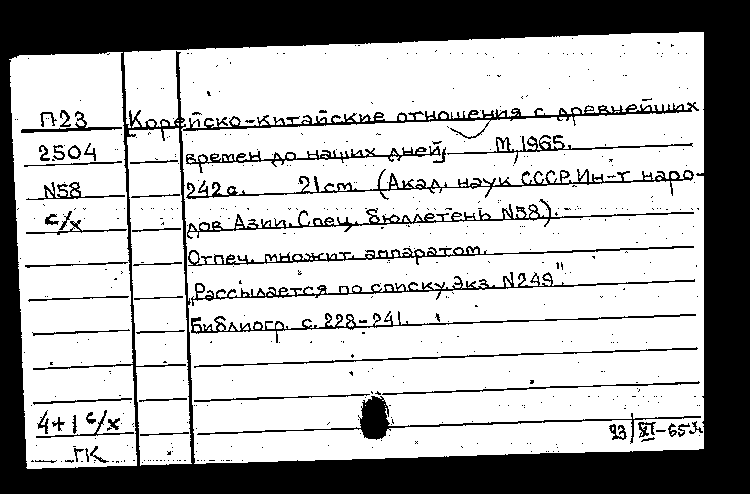 П23 Корейско-китайские отношения с древнейших
2504 времен до наших дней, М, 1965.
N58 242 с. 21 см. (Акад. наук СССР. Ин-т наро-
с/х дов Азии. Спец. бюллетень N58).
Отпеч. множит. аппаратом.
„Рассылается по списку. Экз. N249".
Библиогр. с. 228-241.
4+1 с/х
ГК
23/XI-65